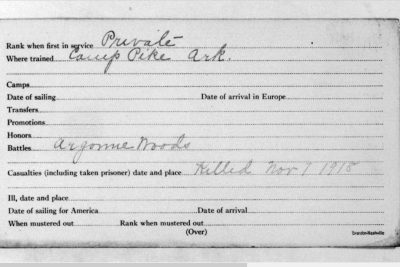 Rank when first in service Private
Where trained Camp Pike Ark.
Camps
Date of sailing Date of arrival in Europe
Transfers
Promotions
Honors
Battles Argonne Woods
Casualties (including taken prisoner) date and place Killed Nov 1 1918
Ill, date and place
Date of sailing for America Date of arrival
When mustered out Rank when mustered out
(Over)
Brandon-Nashville